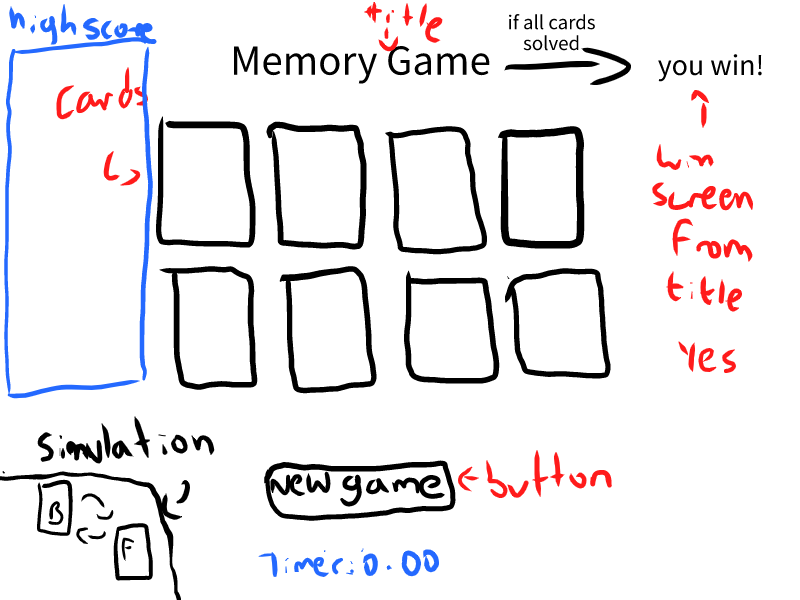 highscore
title
Memory Game
if all cards
solved
you win!
cards
win
screen
from
title
Yes
simulation
B
F
New game
button
Timer:0.00